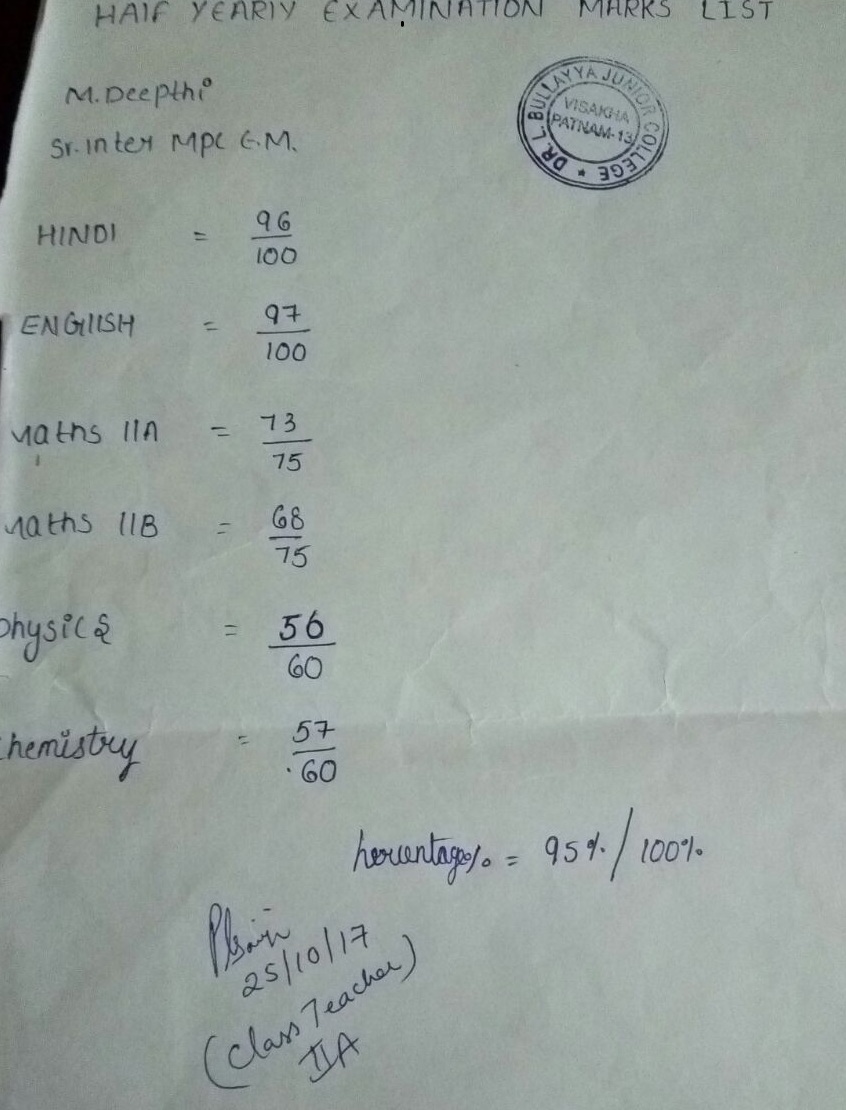 HAIF YEARIY EXAMINATION MARKS LIST
M.Deepthi
Sr.inter MPC E.M.
DR. L. BULLAYYA JUNIOR COLLEGE *
VISAKHA
PATNAM-13
HINDI = 96/100
ENGIISH = 97/100
Maths IIA = 73/75
Maths IIB = 68/75
physics = 56/60
chemistry = 57/60
percentage% = 95%/100%
25/10/17
(Class Teacher)
IIA